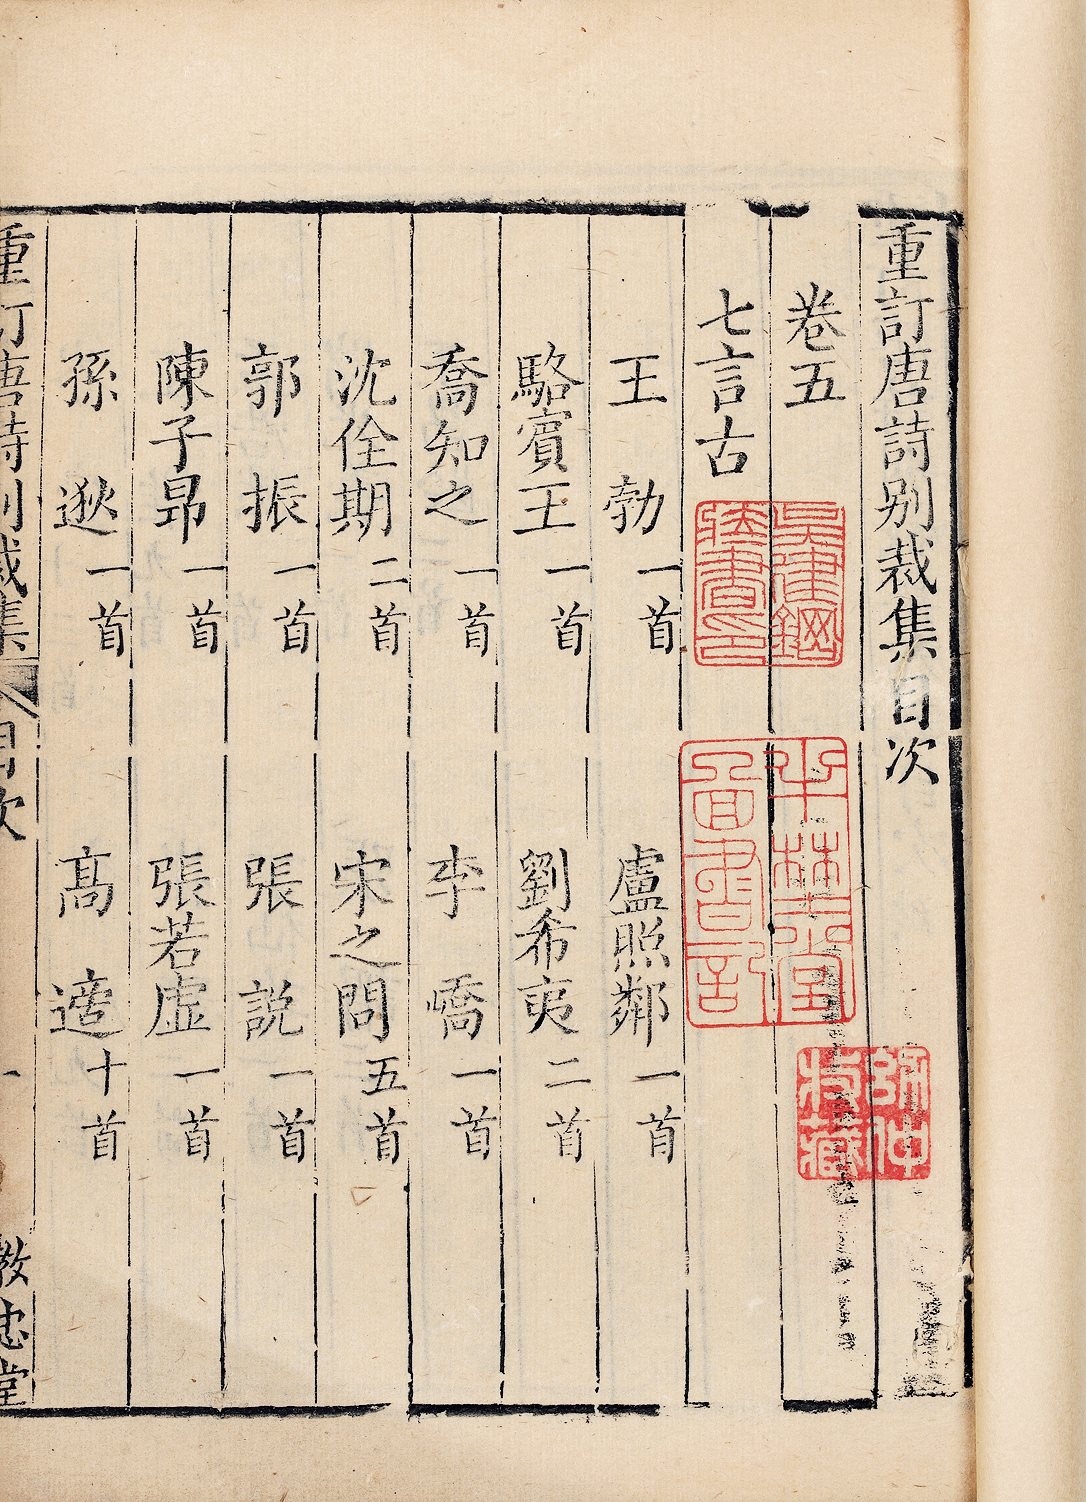 重訂唐詩别裁集目次
卷五
七言古
王勃一首 盧照鄰一首
駱賓王一首 劉希夷二首
喬知之一首 李嶠一首
沈佺期二首 宋之問五首
郭振一首 張説一首
陳子昂一首 張若虛一首
孫逖一首 高適十首
重訂唐詩别裁集 目次 一 教忠堂
吳建鋼
藏書印
半林堂
圖書記
師仲
收藏